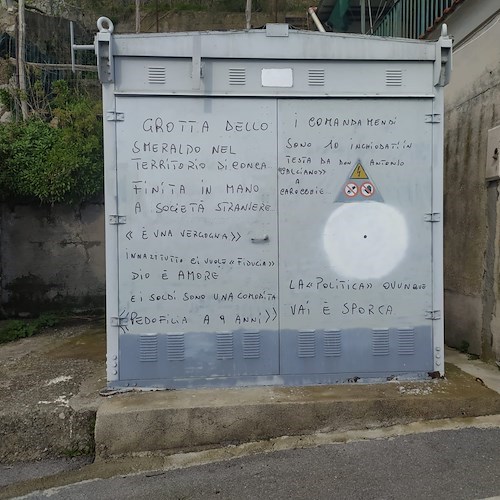 GROTTA DELLO
SMERALDO NEL
TERRITORIO DI CONCA
FINITA IN MANO
A SOCIETÁ STRANIERE
« É UNA VERGOGNA»
INNAZITUTTO CI VUOLE «FIDUCIA»
DIO É AMORE
E I SOLDI SONO UNA COMODITA
«PEDOFILIA A 9 ANNI»
I COMANDAMENDI
SONO 10 INCHIODATI IN
TESTA DA DON ANTONIO
A
CAROCCHIE
LA «POLITICA» OVUNQUE
VAI É SPORCA